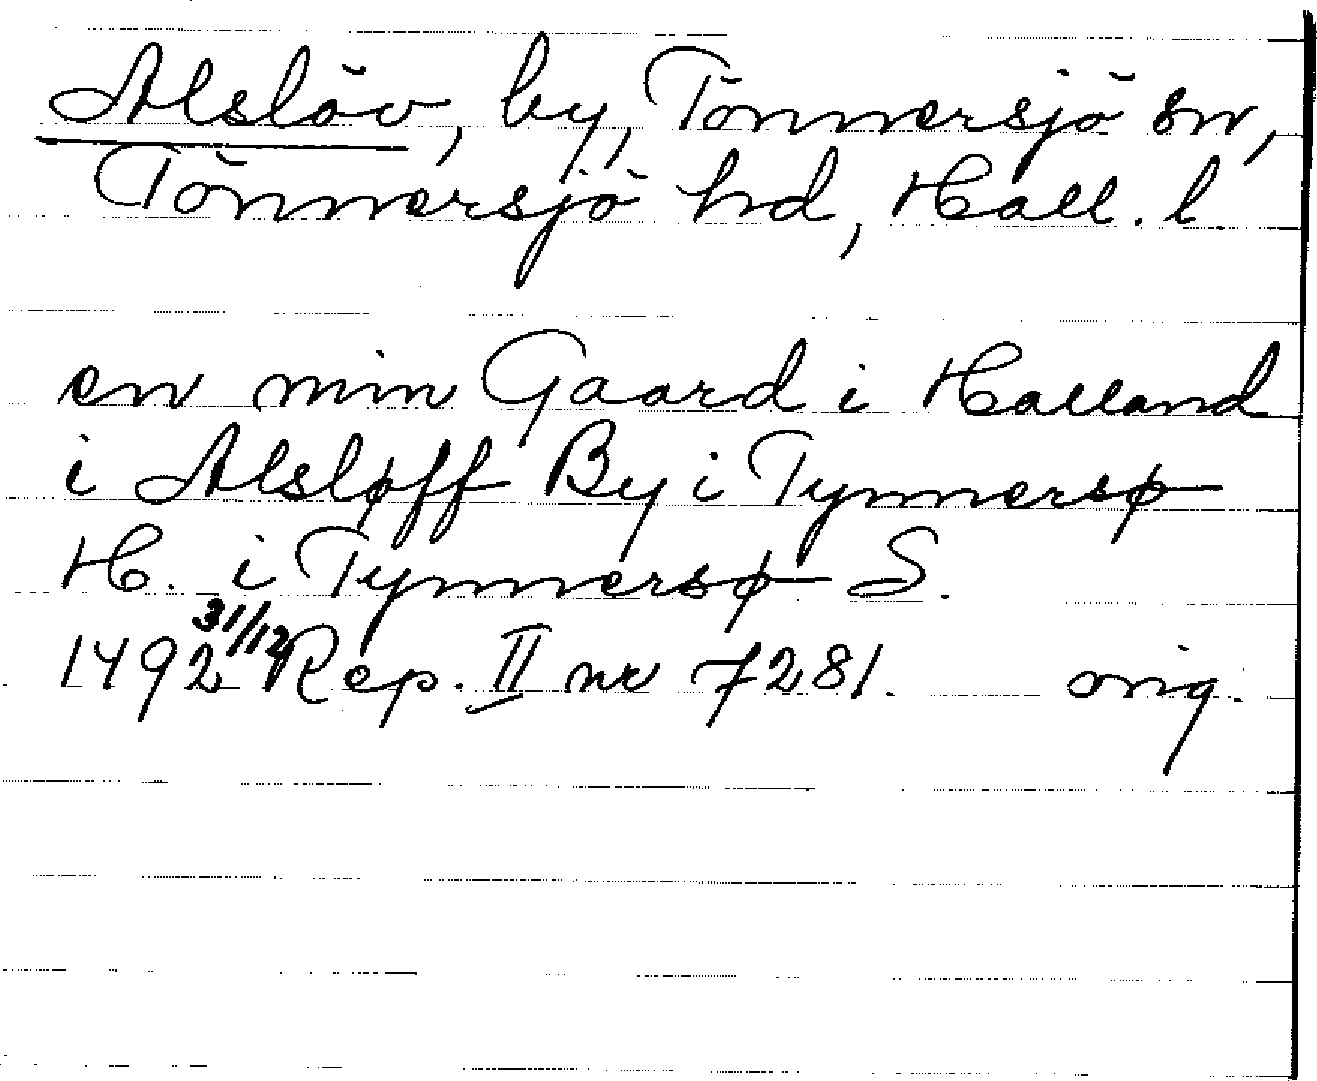 Alslöv, by, Tönnersjö sn,
Tönnersjö hd, Hall. l
en min Gaard i Halland
i Alsløff By i Tynnersø
H. i Tynnersø S.
1492 31/12 Rep. II nr 7281. orig.